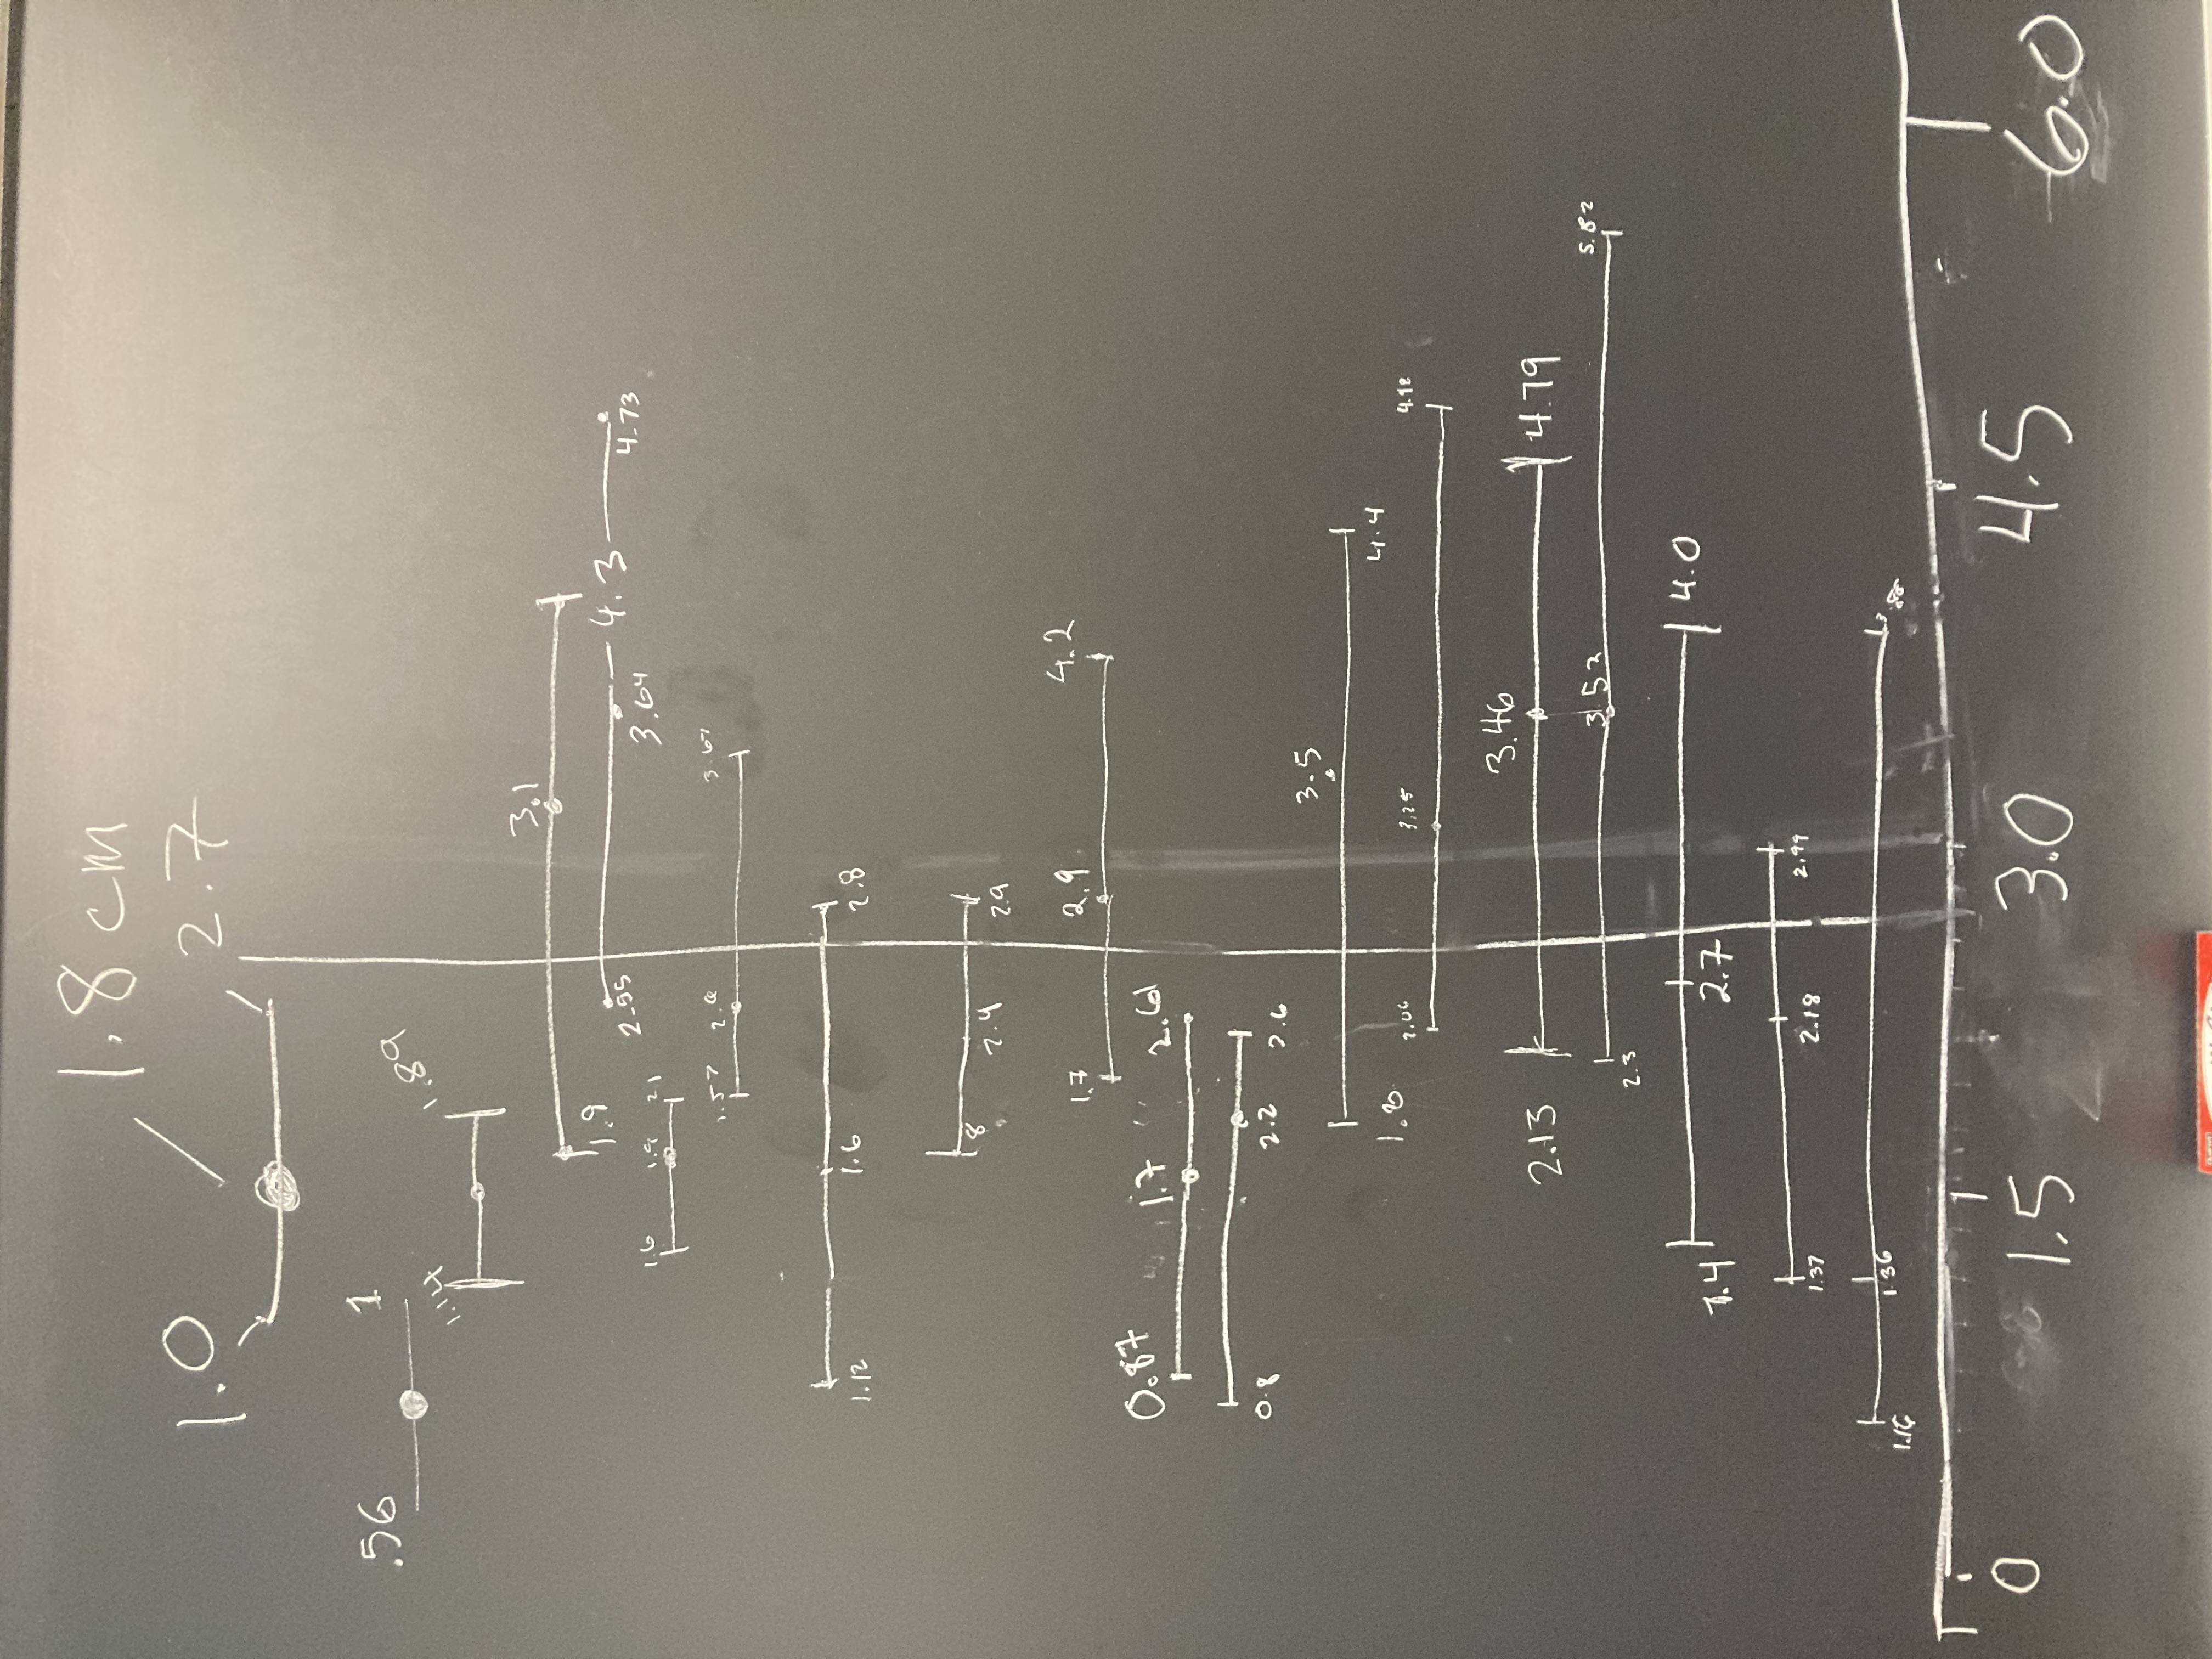 1.8 cm
1.0 2.7
.56 1
1.14 1.89
3.1
1.9 4.3
2.55 3.64 4.73
1.6 1.9 2.1
1.57 3.67
1.12 1.6 2.8
1.8 2.4 2.9
1.7 2.9 4.2
0.87 1.7 2.61
0.8 2.2 2.6
3.5
1.8 4.4
2.06 3.25 4.92
3.46
2.13 4.79
3.53 5.82
2.3
1.4 2.7 4.0
1.37 2.18 2.99
1.16 1.36
0 1.5 3.0 4.5 6.0